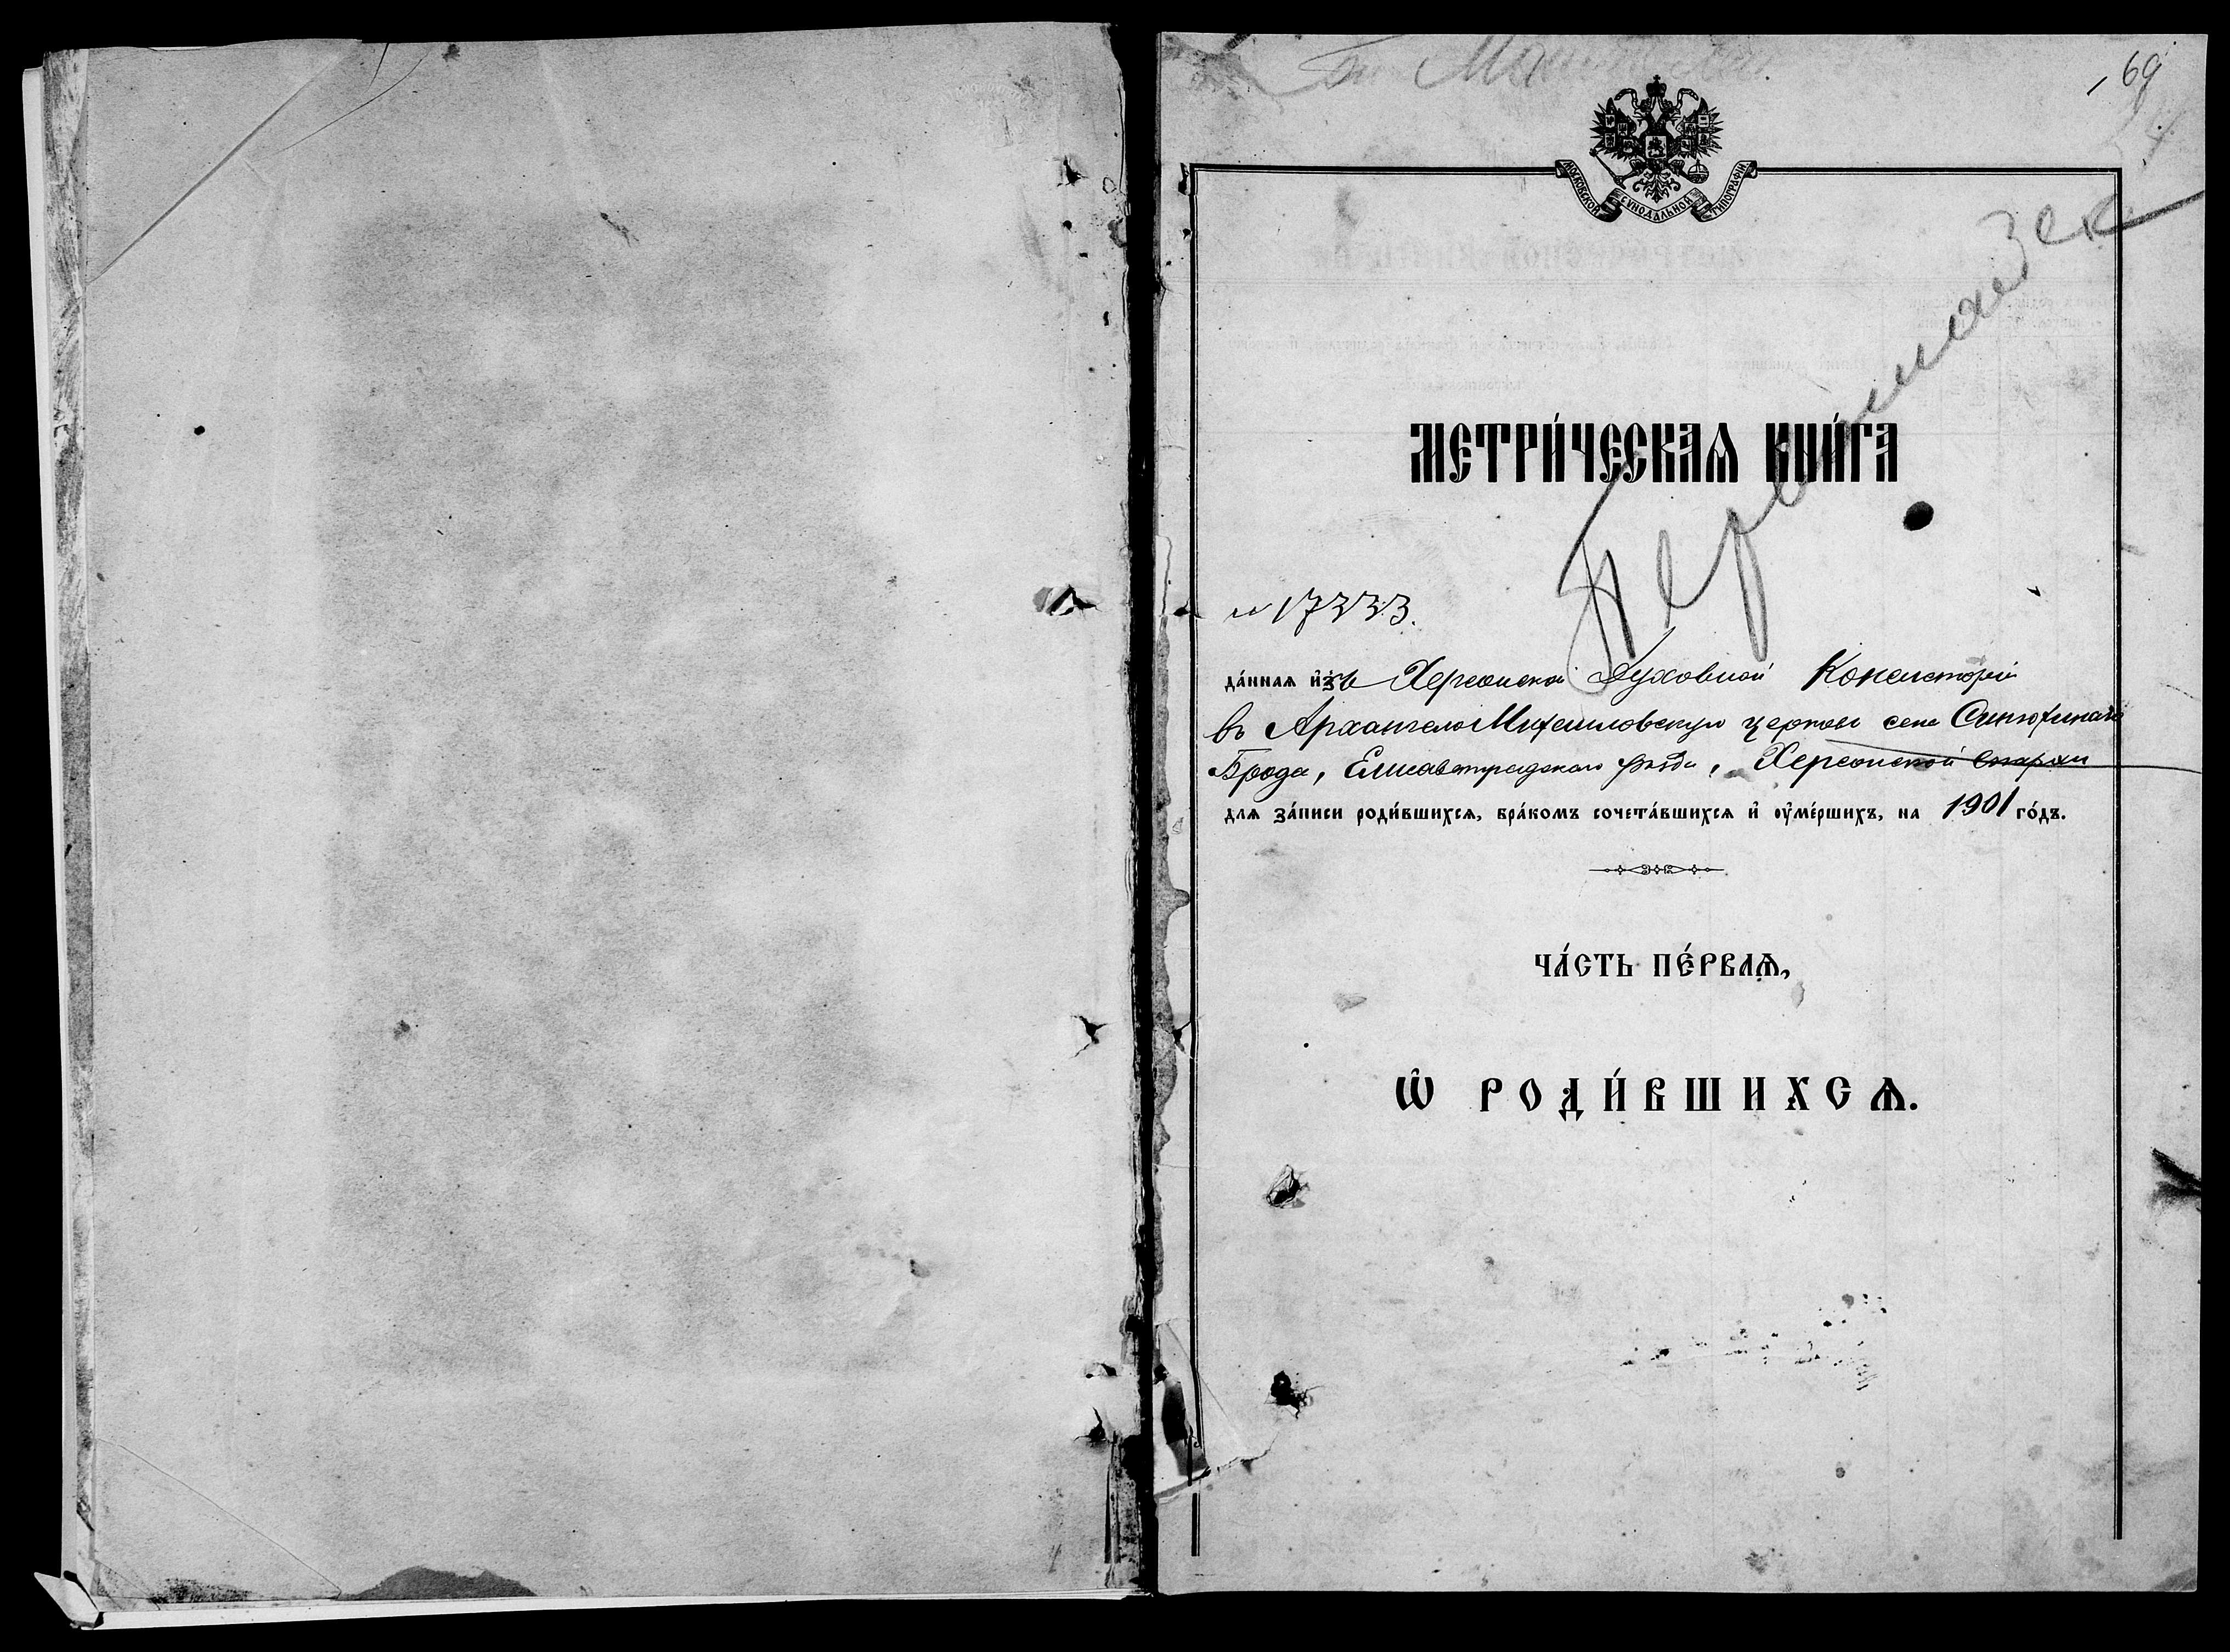 69
МОСКОВСКОЙ СѴНОДАЛЬНОЙ ТИПОГРАФІИ.
МЕТРИ́ЧЕСКАѦ КНИ́ГА
№ 17333.
да́ннаѧ и҆зъ Херсонской Духовной Консисторіи
въ Архангело Михаиловскую церковь села Синюхинаго
Брода, Елисаветградскаго уѣзда, Херсонской епархіи
длѧ за́писи роди́вшихсѧ, бра́комъ сочета́вшихсѧ и҆ ᲂу҆ме́ршихъ, на 1901 го́дъ.
ЧА́СТЬ ПЕ́РВАѦ,
Ѽ РОДИ́ВШИХСѦ.